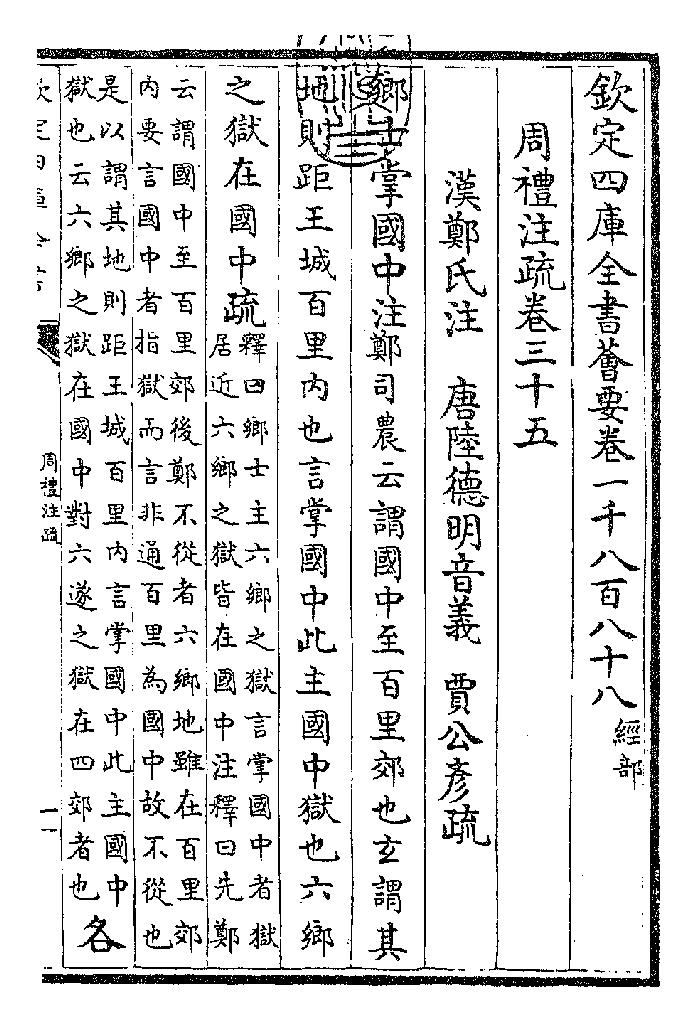 欽定四庫全書薈要卷一千八百八十八
經部
周禮注疏卷三十五
漢鄭氏注　唐陸德明音義　賈公彥疏
鄉士掌國中注鄭司農云謂國中至百里郊也玄謂其
地則距王城百里內也言掌國中此主國中獄也六鄉
之獄在國中疏
釋曰鄉士主六鄉之獄言掌國中者獄
居近六鄉之獄皆在國中注釋曰先鄭
云謂國中至百里郊後鄭不從者六鄉地雖在百里郊
內要言國中者指獄而言非通百里為國中故不從也
是以謂其地則距王城百里內言掌國中此主國中
獄也云六鄉之獄在國中對六遂之獄在四郊者也
各
周禮注疏
一